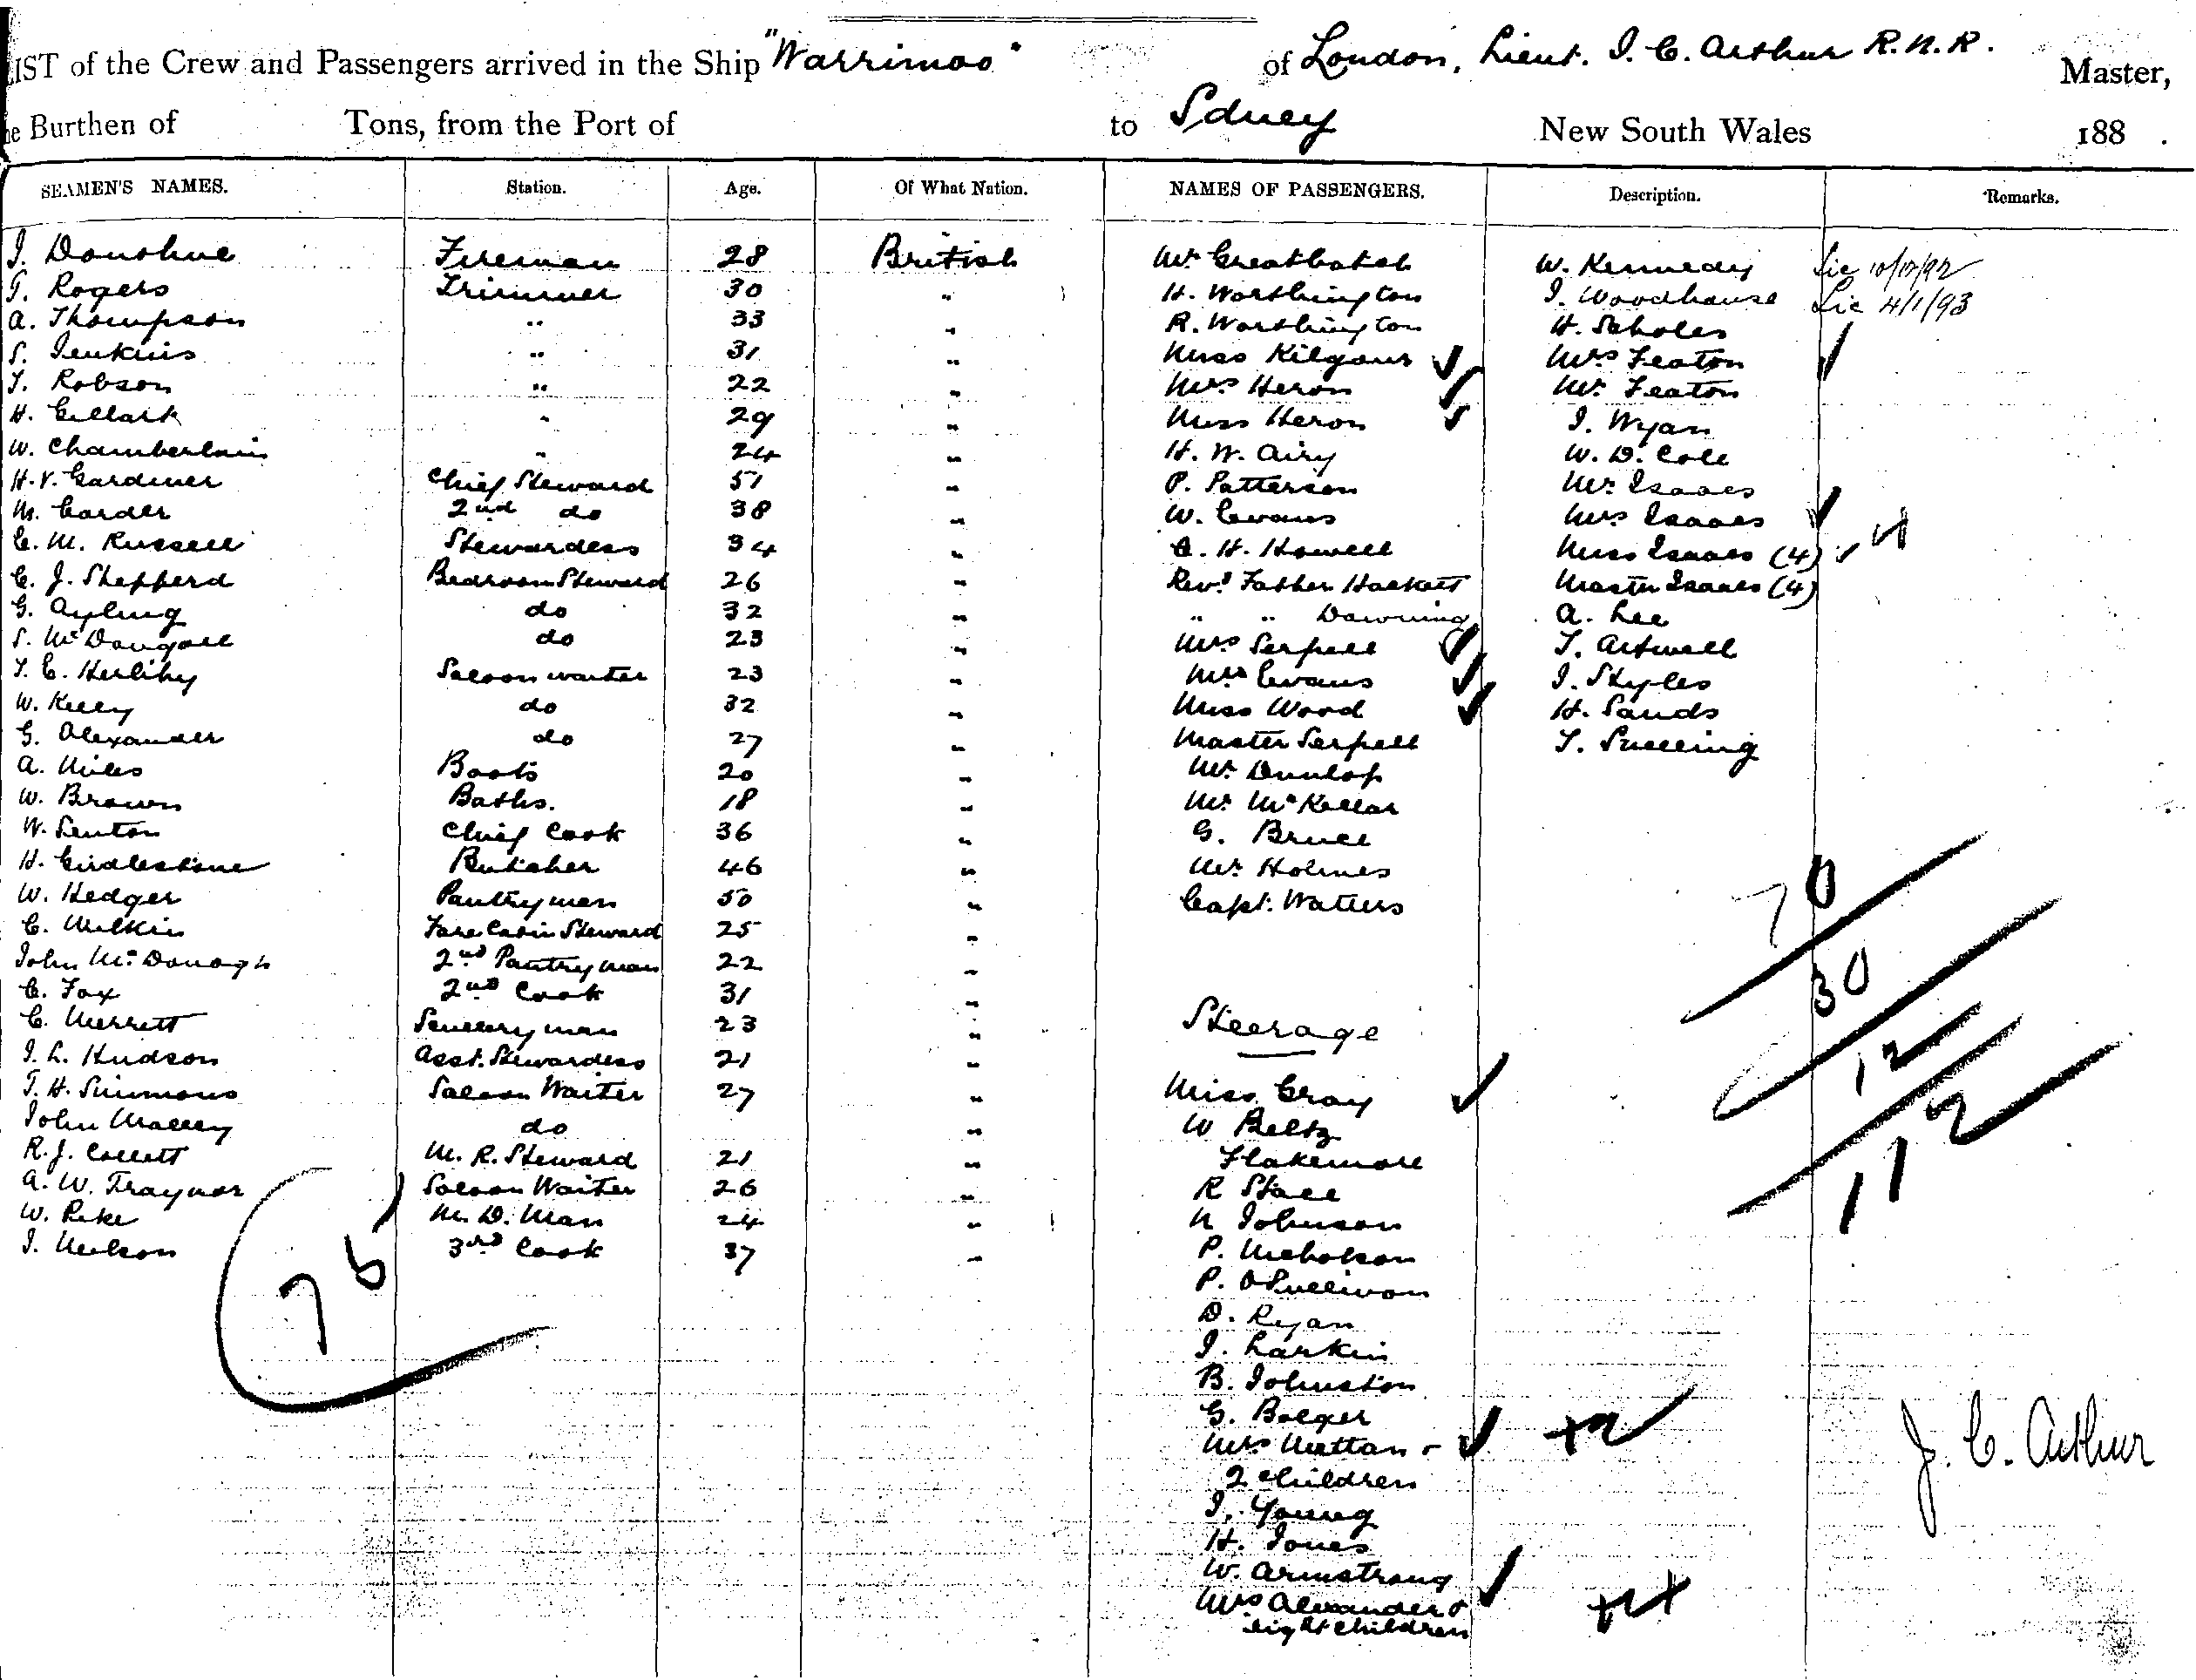 LIST of the Crew and Passengers arrived in the Ship "Warrimoo" of London, Lieut. J. C. Arthur R.N.R. Master,
he Burthen of Tons, from the Port of to Sdney New South Wales 188 .
SEAMEN'S NAMES. Station. Age. Of What Nation. NAMES OF PASSENGERS. Description. Remarks.
J. Donohue Fireman 28 British Mr Greatbatch W. Kennedy Lic 10/12/92
T. Rogers Trimmer 30 " H. Worthington J. Woodhouse Lic 4/1/93
A. Thompson " 33 " R. Worthington H. Scholes
S. Jenkins " 31 " Miss Kilgour Mrs Featon
T. Robson " 22 " Mrs Heron Mr Featon
H. 29 " Miss Heron J. Wyan
W. Chamberlain " 24 " H. W. Airy W. D. Cole
H. V. Gardiner Chief Steward 51 " P. Patterson Mr Isaacs
M. Carder 2nd do 38 " W. Evans Mrs Isaacs
C. M. Russell Stewardess 34 " A. H. Howell Miss Isaacs (4)
C. J. Shepperd Bedroom Steward 26 " Revd Father Hackett Master Isaacs (4)
G. Ayling do 32 " " " Downing A. Lee
S. McDougall do 23 " Mrs Serpell T. Artwell
T. C. Herlihy Saloon waiter 23 " Mrs Evans J. Styles
W. Kelly do 32 " Miss Wood H. Sands
G. Alexander do 27 " Master Serpell T. Snelling
A. Miles Boots 20 " Mr Dunlop
W. Brown Baths. 18 " Mr McKellar
W. Senton Chief Cook 36 " G. Bruce
H. Girdlestone Butcher 46 " Mr Holmes
W. Hedger Pantryman 50 " Capt. Watters
C. Wilkin Fore Cabin Steward 25 "
John McDonagh 2nd Pantryman 22 "
C. Fox 2nd Cook 31 "
C. Merrett Scullery man 23 " Steerage
J. L. Hudson Asst. Stewardess 21 "
T. H. Simmons Saloon Waiter 27 " Miss Gray
John Malley do " W Beltz
R. J. Collett M. R. Steward 21 " Flakemore
A. W. Traynor Saloon Waiter 26 " R Stace
W. Pike M. D. Man 24 " N Johnson
J. Neilson 3rd Cook 37 " P. Nicholson
P. O'Sullivan
D. Ryan
J. Larkin
B. Johnston
G. Bolger
Mrs Mattan &
2 children
J. Young
H. Jones
W. Armstrong
Mrs Alexander &
eight children
70
30
12
112
+2
J. C. Arthur